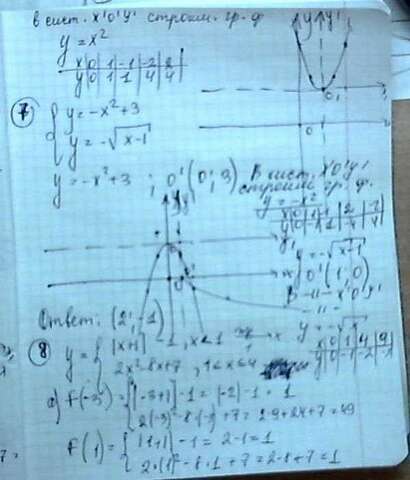 в сист. x'o'y' строим гр. ф
y = x²
x | 0 | 1 | -1 | -2 | 2
y | 0 | 1 | 1 | 4 | 4
y y'
O₁
0
⑦ { y = -x² + 3
y = -√x-1
y = -x² + 3 ; O'(0; 3) В сист. x'o'y'
строим гр. ф.
y = -x²
y = -√x-1
O'(1; 0)
В -"- x'o'y'
-"-
y = -√x
x | 0 | 1 | 4 | 9
y | 0 | -1 | -2 | -3
Ответ: (2; -1)
⑧ y = { |x+1| - 1, x<1
2x² - 8x + 7, 1≤x≤4
a) f(-3) = { |-3+1| - 1 = |-2| - 1 = 1
2(-3)² - 8·(-3) + 7 = 2·9 + 24 + 7 = 49
f(1) = { |1+1| - 1 = 2 - 1 = 1
2·(1)² - 8·1 + 7 = 2 - 8 + 7 = 1